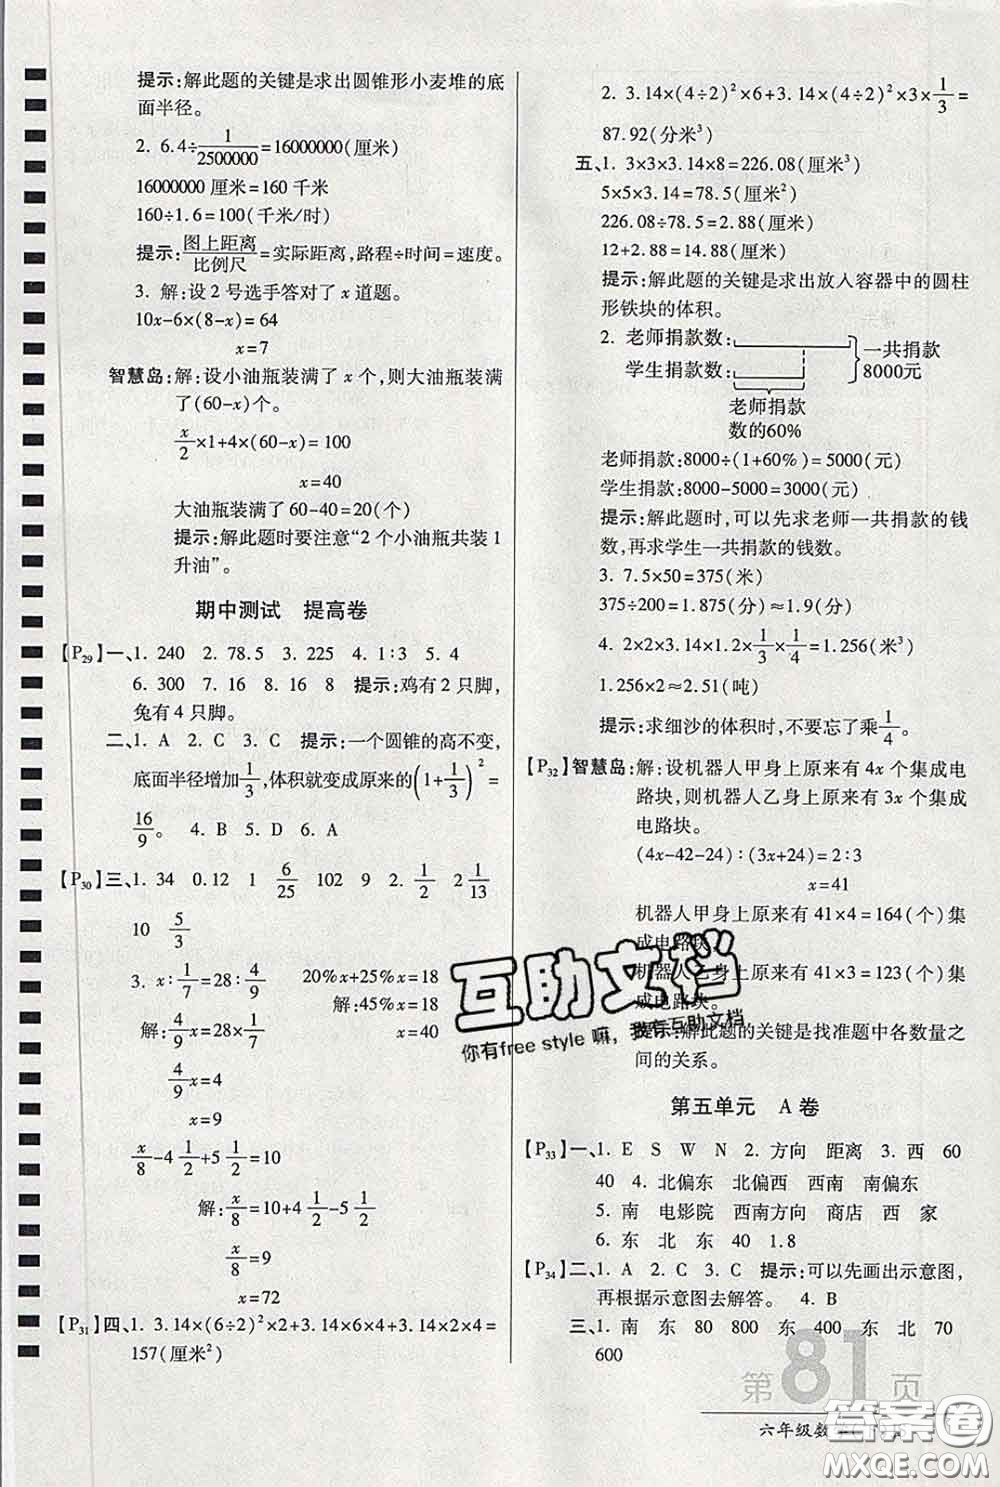 提示:解此题的关键是求出圆锥形小麦堆的底
面半径。
2. 6.4÷1/2500000=16000000(厘米)
16000000厘米=160千米
160÷1.6=100(千米/时)
提示:图上距离/比例尺=实际距离,路程÷时间=速度。
3. 解:设2号选手答对了x道题。
10x-6×(8-x)=64
x=7
智慧岛:解:设小油瓶装满了x个,则大油瓶装满
了(60-x)个。
x/2×1+4×(60-x)=100
x=40
大油瓶装满了60-40=20(个)
提示:解此题时要注意“2个小油瓶共装1
升油”。
期中测试 提高卷
【P29】一、1. 240 2. 78.5 3. 225 4. 1:3 5. 4
6. 300 7. 16 8. 16 8 提示:鸡有2只脚,
兔有4只脚。
二、1. A 2. C 3. C 提示:一个圆锥的高不变,
底面半径增加1/3,体积就变成原来的(1+1/3)²=
16/9。 4. B 5. D 6. A
【P30】三、1. 34 0.12 1 6/25 102 9 2. 1/2 2 1/13
10 5/3
3. x:1/7=28:4/9 20%x+25%x=18
解:4/9x=28×1/7 解:45%x=18
4/9x=4 x=40
x=9
x/8-4 1/2+5 1/2=10
解:x/8=10+4 1/2-5 1/2
x/8=9
x=72
【P31】四、1. 3.14×(6÷2)²×2+3.14×6×4+3.14×2×4=
157(厘米²)
2. 3.14×(4÷2)²×6+3.14×(4÷2)²×3×1/3=
87.92(分米³)
五、1. 3×3×3.14×8=226.08(厘米³)
5×5×3.14=78.5(厘米²)
226.08÷78.5=2.88(厘米)
12+2.88=14.88(厘米)
提示:解此题的关键是求出放入容器中的圆柱
形铁块的体积。
2. 老师捐款数:
学生捐款数:
一共捐款
8000元
老师捐款
数的60%
老师捐款:8000÷(1+60%)=5000(元)
学生捐款:8000-5000=3000(元)
提示:解此题时,可以先求老师一共捐款的钱
数,再求学生一共捐款的钱数。
3. 7.5×50=375(米)
375÷200=1.875(分)≈1.9(分)
4. 2×2×3.14×1/3×1/4=1.256(米³)
1.256×2≈2.51(吨)
提示:求细沙的体积时,不要忘了乘1/4。
【P32】智慧岛:解:设机器人甲身上原来有4x个集成电
路块,则机器人乙身上原来有3x个集成
电路块。
(4x-42-24):(3x+24)=2:3
x=41
机器人甲身上原来有41×4=164(个)集
成电路块。
机器人乙身上原来有41×3=123(个)集
成电路块。
提示:解此题的关键是找准题中各数量之
间的关系。
第五单元 A卷
【P33】一、1. E S W N 2. 方向 距离 3. 西 60
40 4. 北偏东 北偏西 西南 南偏东
5. 南 电影院 西南方向 商店 西 家
6. 东 北 东 40 1.8
【P34】二、1. A 2. C 3. C 提示:可以先画出示意图,
再根据示意图去解答。 4. B
三、1. 南 东 80 800 东 400 东 北 70
600
第81页
六年级数学
互助文档
你有free style 嘛, 我有互助文档
答案卷
MXQE.COM